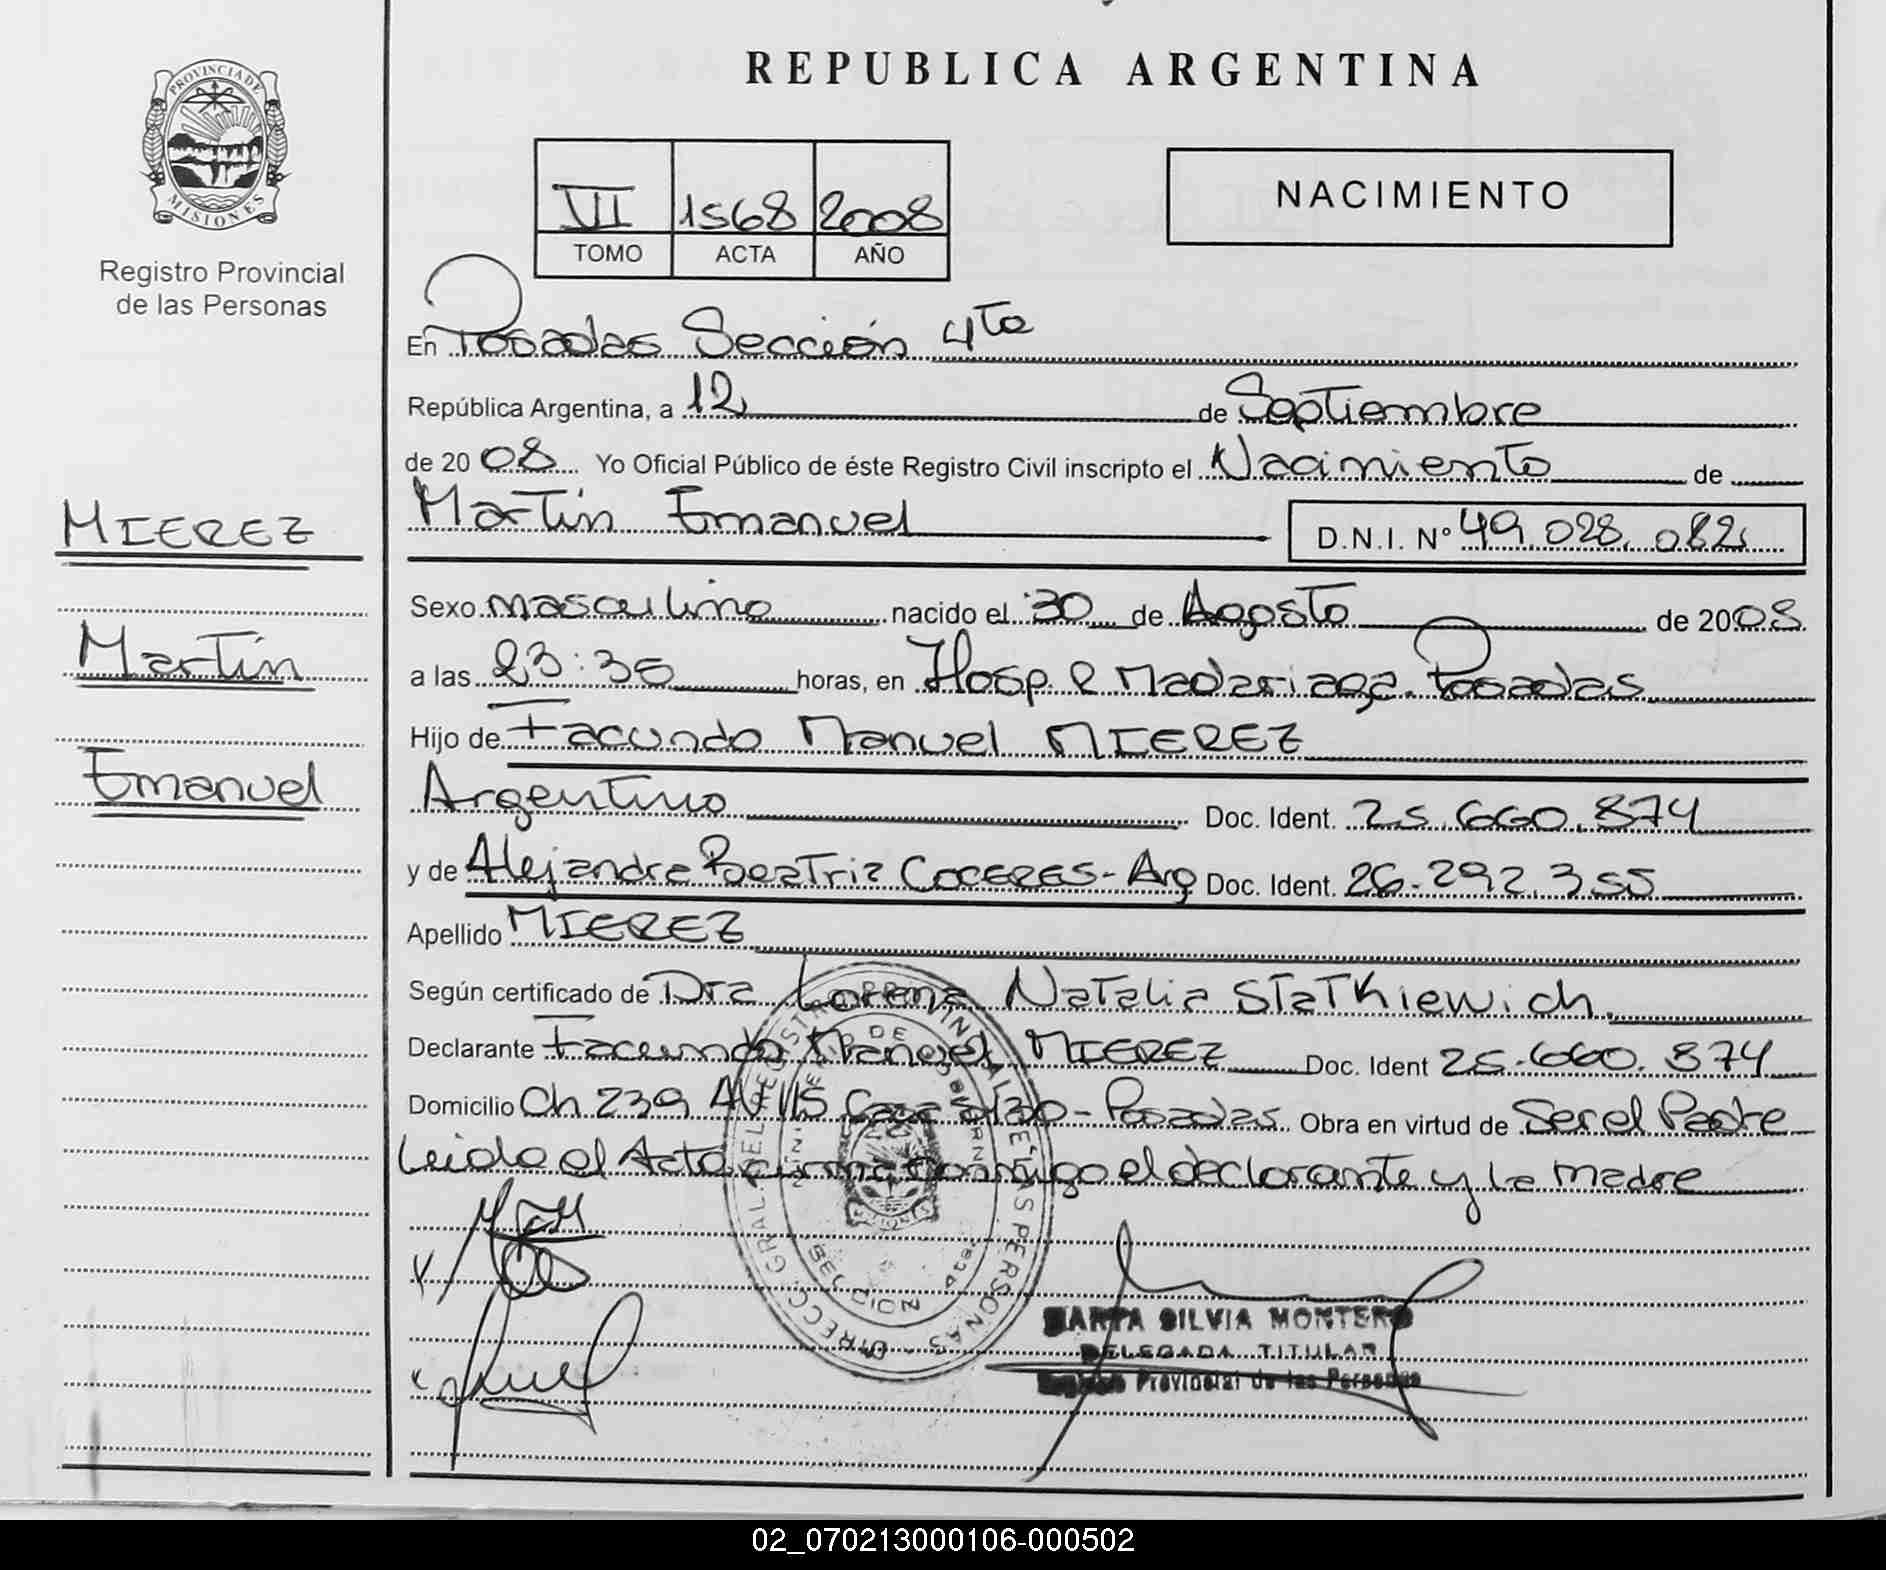 REPUBLICA ARGENTINA
PROVINCIA DE MISIONES
Registro Provincial
de las Personas
VII 1568 2008
TOMO ACTA AÑO
NACIMIENTO
En Posadas Sección 4ta
República Argentina, a 12 de Septiembre
de 2008 Yo Oficial Público de éste Registro Civil inscripto el Nacimiento de
Martín Emanuel D.N.I. Nº 49.028.082
MIEREZ
Martín
Emanuel
Sexo masculino nacido el 30 de Agosto de 2008
a las 23:35 horas, en Hosp. R Madariaga. Posadas
Hijo de Facundo Manuel MIEREZ
Argentino Doc. Ident. 25.660.874
y de Alejandra Beatriz COCERES - Arg Doc. Ident. 26.292.355
Apellido MIEREZ
Según certificado de Dra Lorena Natalia Statkiewich.
Declarante Facundo Manuel MIEREZ Doc. Ident 25.660.874
Domicilio Ch 239 AV 115 Casa - Posadas. Obra en virtud de Ser el Padre
Leida el Acta firma conmigo el declarante y la madre
DIRECC. GRAL. DEL REGISTRO PROVINCIAL DE LAS PERSONAS
MINISTERIO DE GOBIERNO
MARTA SILVIA MONTERO
DELEGADA TITULAR
Registro Provincial de las Personas
02_070213000106-000502